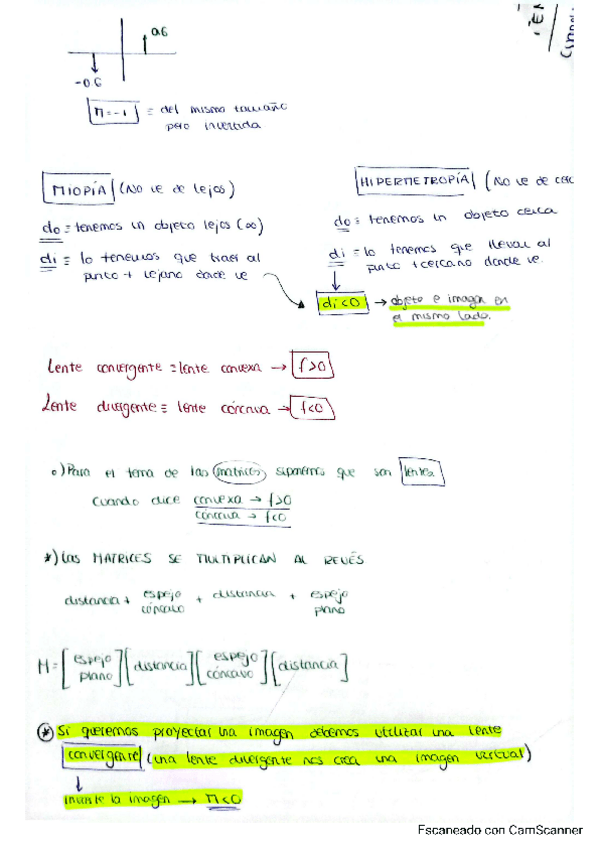 0.6
-0.6
m=-1 = del mismo tamaño
pero invertida
MIOPÍA (No ve de lejos)
do = tenemos un objeto lejos (∞)
di = lo tenemos que traer al
punto + lejano donde ve
HIPERMETROPÍA (No ve de cerc
do = tenemos un objeto cerca
di = lo tenemos que llevar al
punto + cercano donde ve.
di<0 → objeto e imagen en
el mismo lado.
Lente convergente = lente convexa → f>0
Lente divergente = lente cóncava → f<0
o) Para el tema de las matrices suponemos que son lentes
cuando dice convexa → f>0
cóncava → f<0
*) Las MATRICES SE MULTIPLICAN AL REVÉS
distancia + espejo cóncavo + distancia + espejo plano
M = [espejo plano] [distancia] [espejo cóncavo] [distancia]
* Si queremos proyectar una imagen debemos utilizar una lente
convergente (una lente divergente nos crea una imagen virtual)
↓
invierte la imagen → m<0
Escaneado con CamScanner